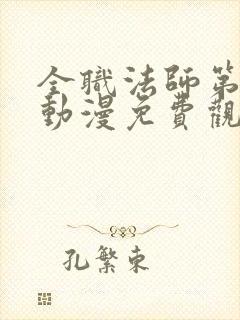 全職法師第
動漫免費觀
孔繁東